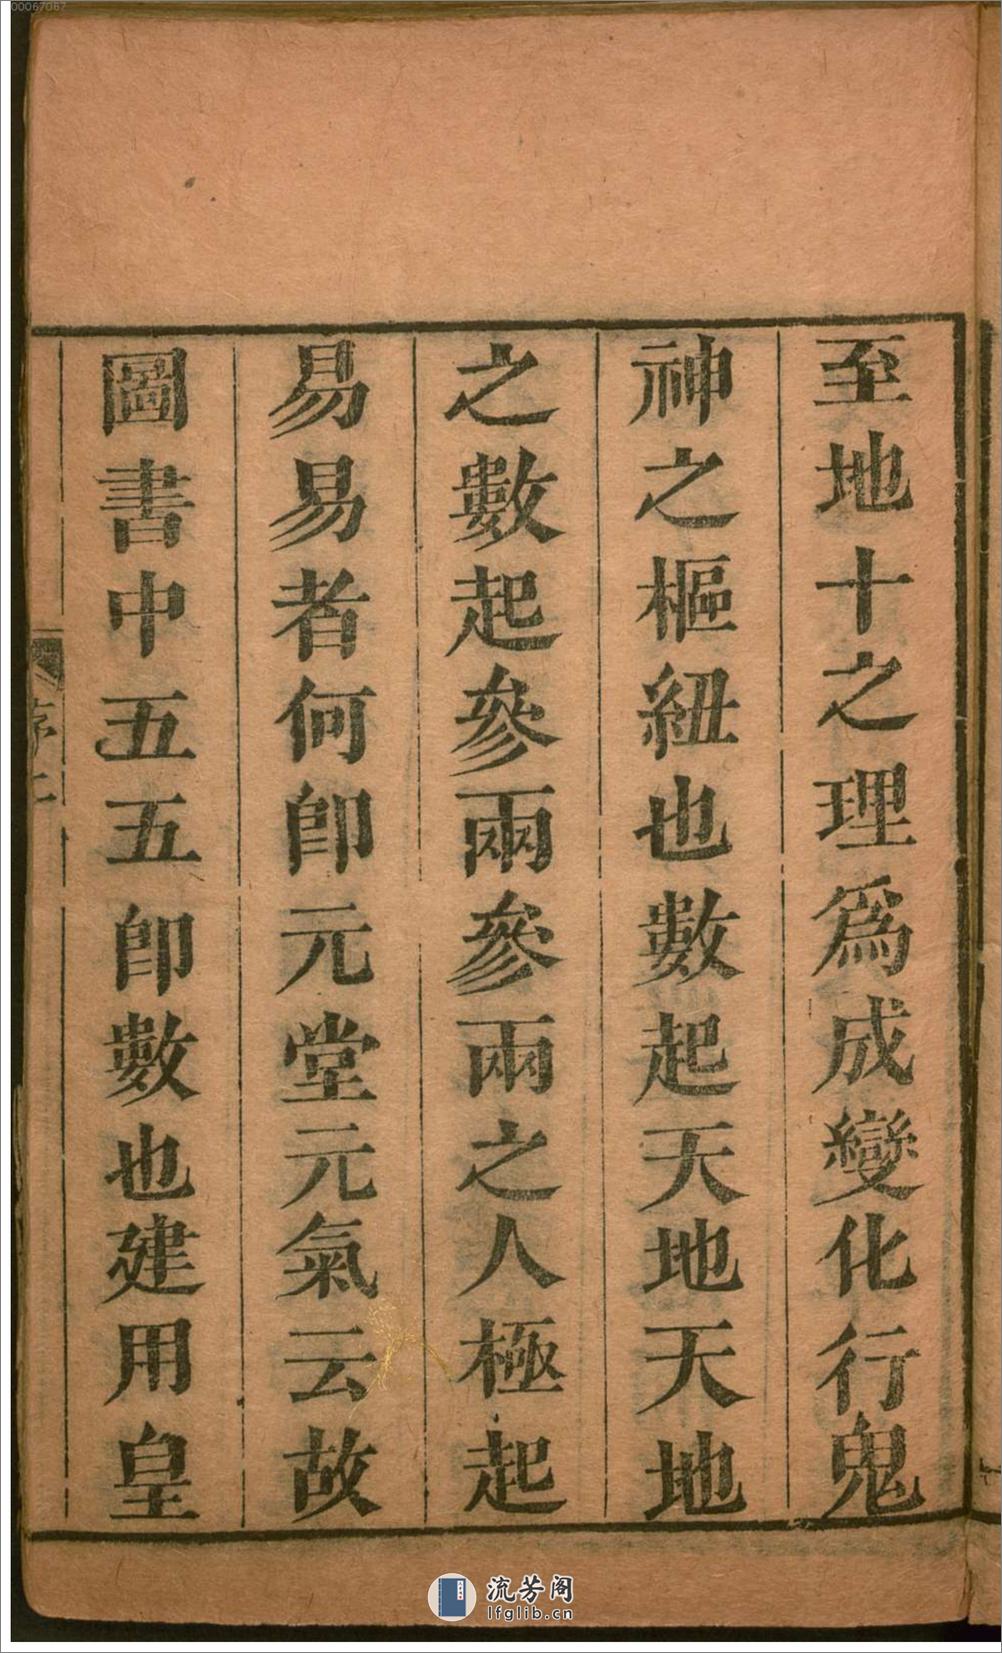 00067067
至地十之理爲成變化行鬼
神之樞紐也數起天地天地
之數起參兩參兩之人極起
易易者何卽元堂元氣云故
圖書中五五卽數也建用皇
序二
流芳阁
lfglib.cn